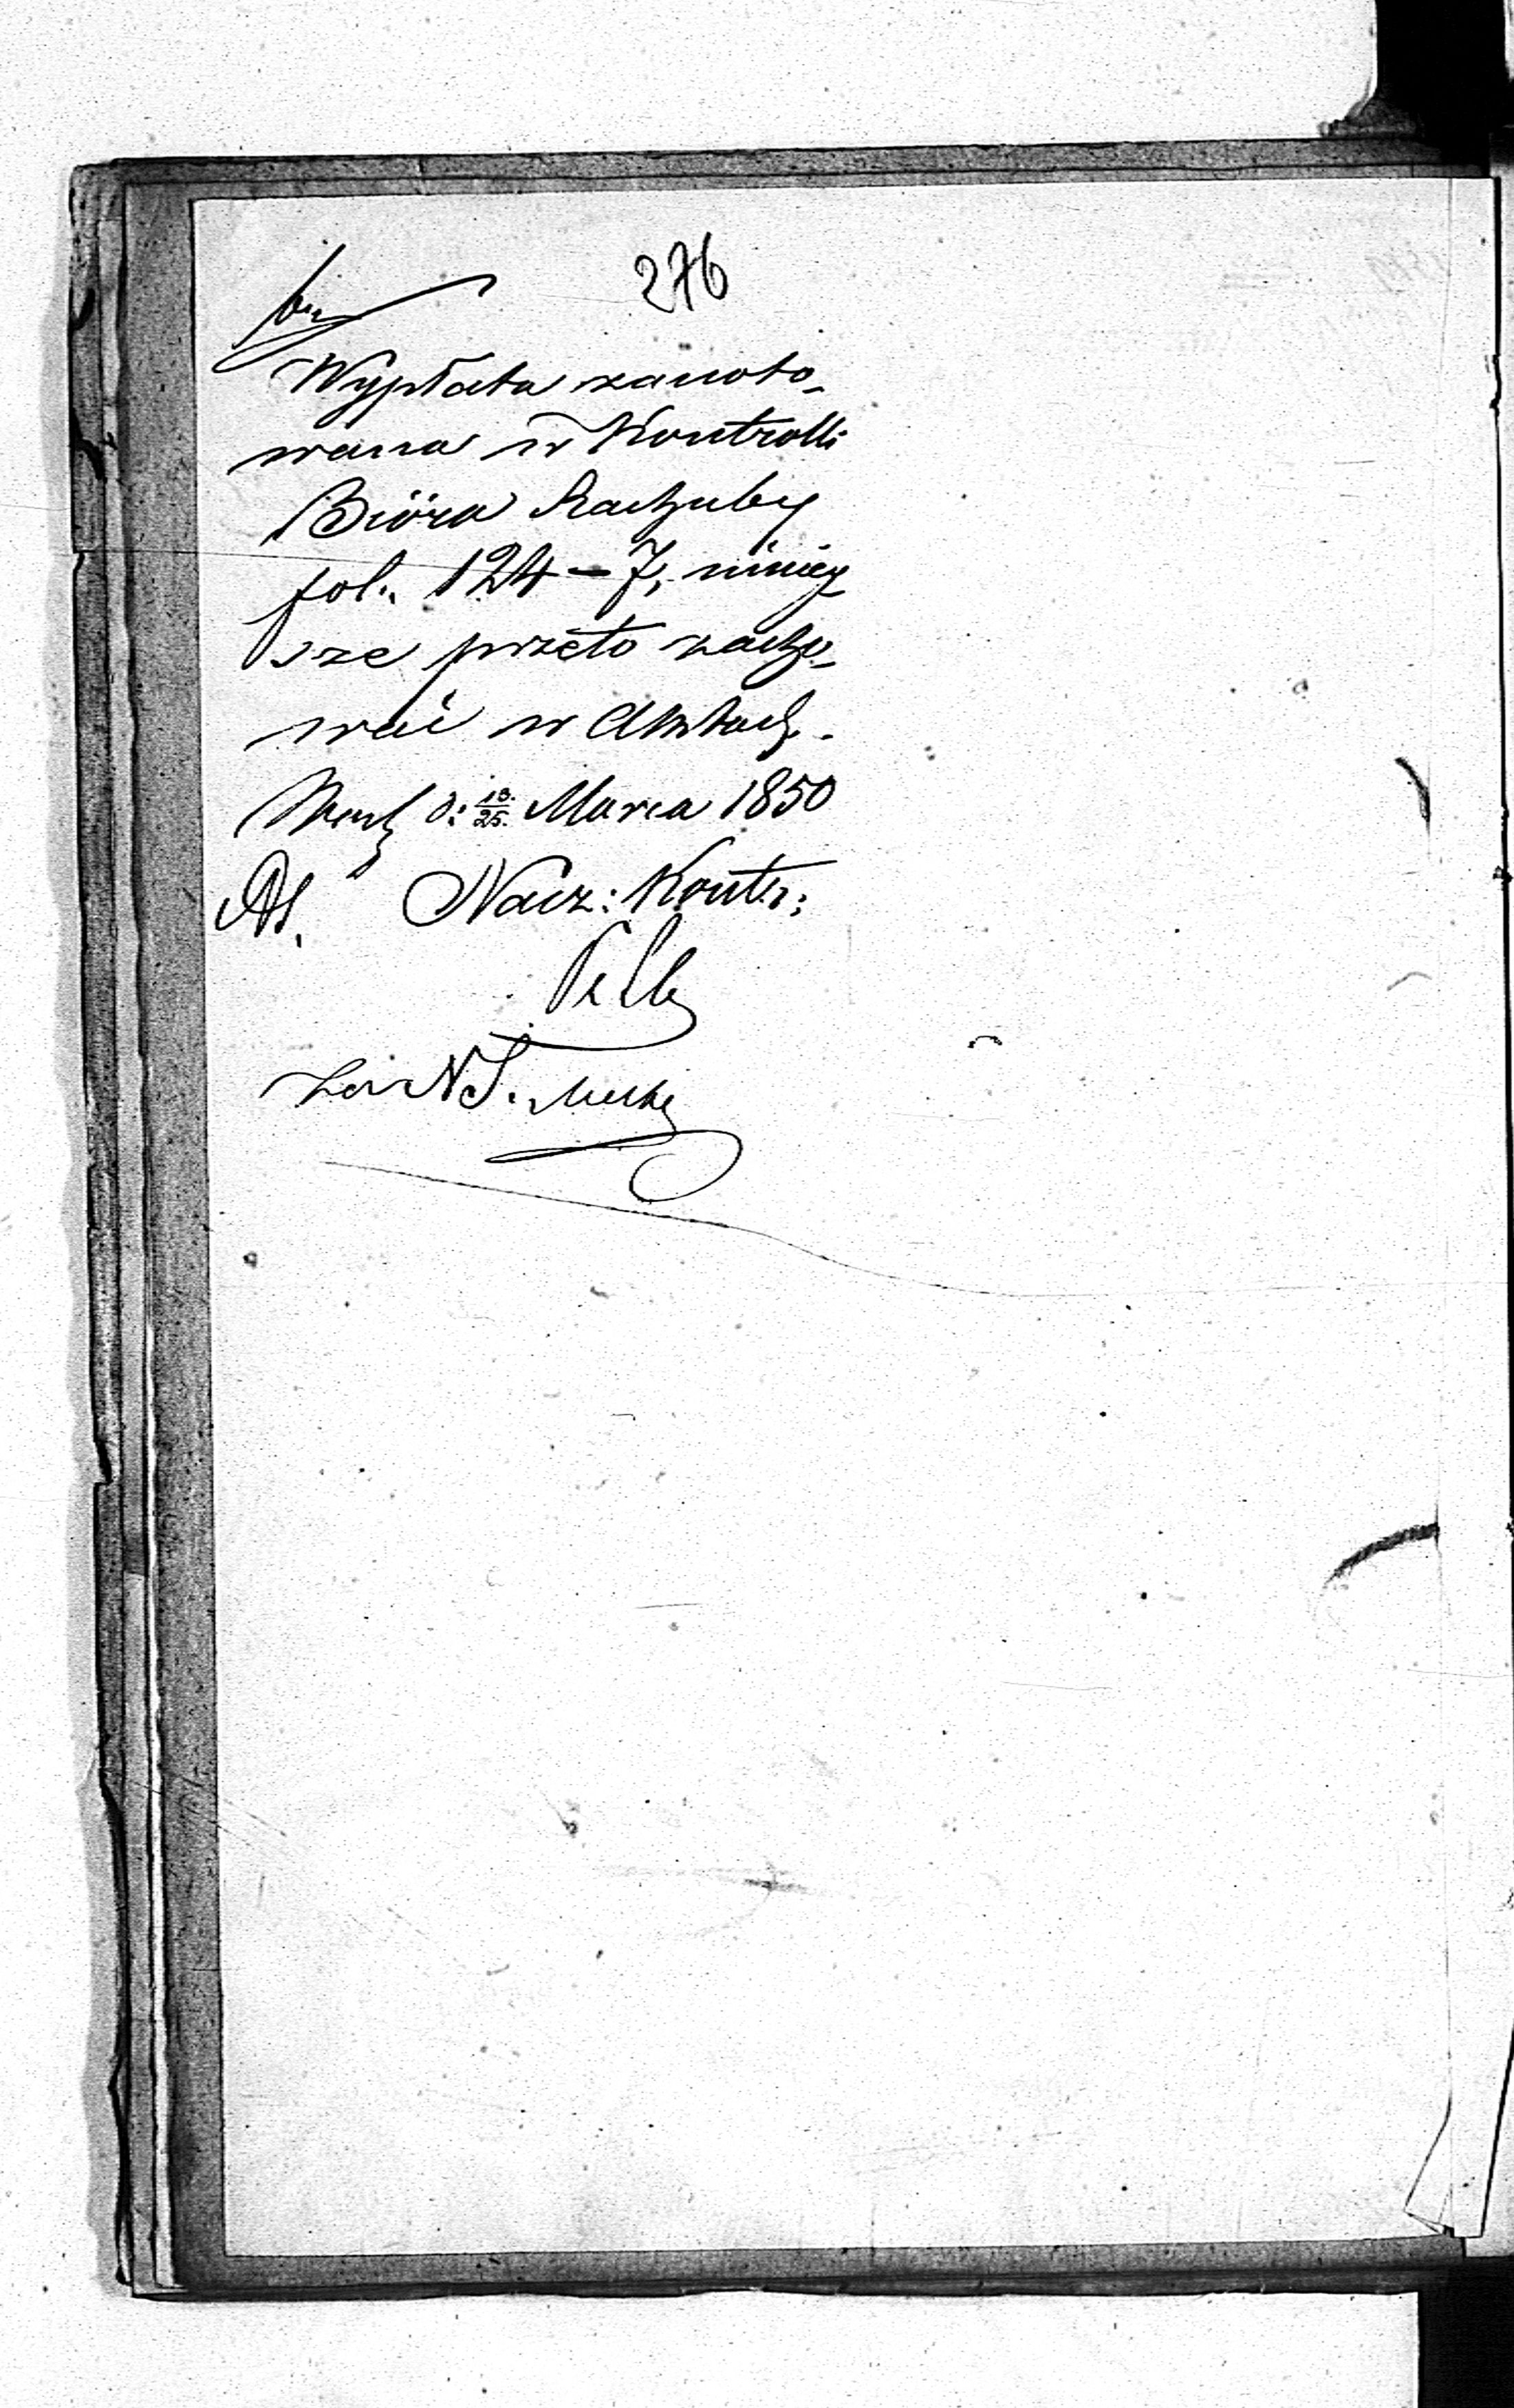 276
Wypłata zanoto-
wana w Kontrolli
Bióra Rachuby
fol. 124-7, niniey
sze przeto zacho-
wać w Aktach.
d: 13/25. Marca 1850
Nacz: Kontr:
za NS.